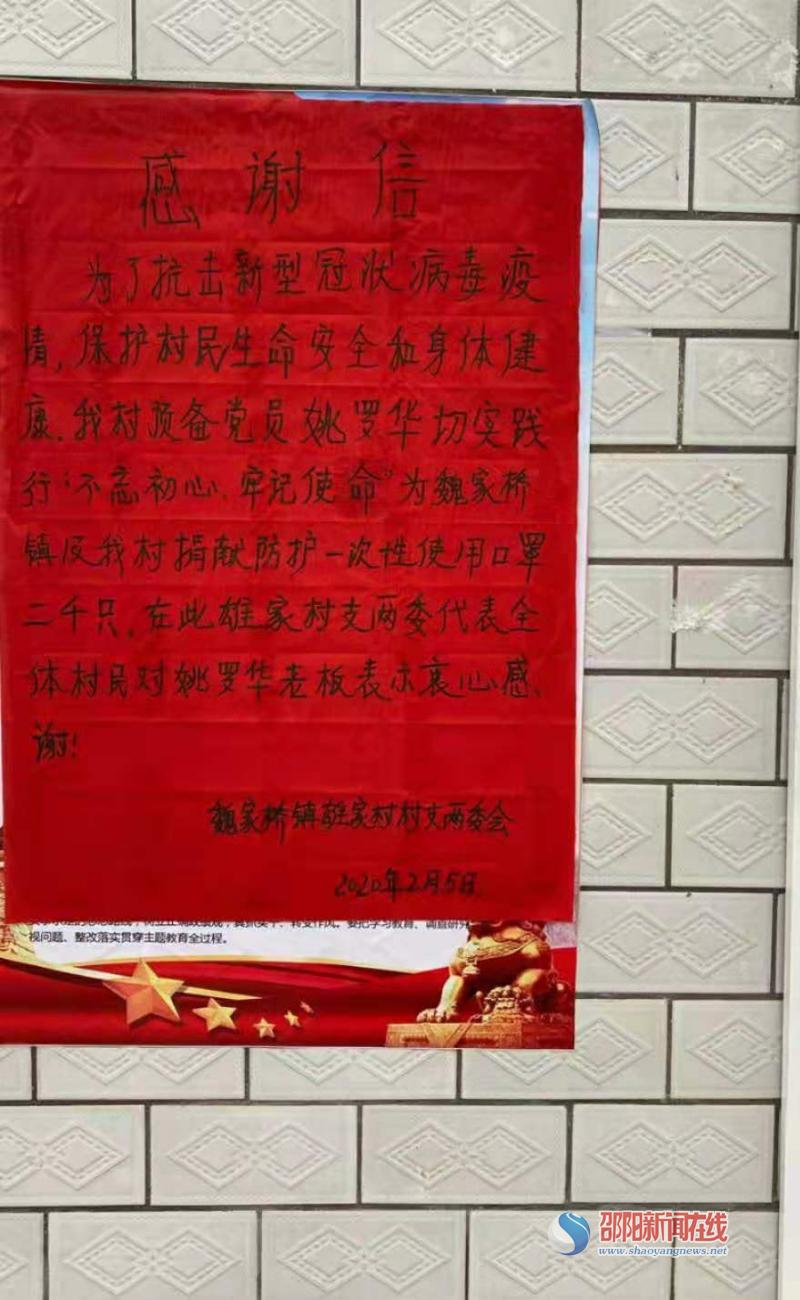 感谢信
为了抗击新型冠状病毒疫
情,保护村民生命安全和身体健
康.我村预备党员姚罗华切实践
行:“不忘初心、牢记使命”为魏家桥
镇及我村捐献防护一次性使用口罩
二千只,在此雄家村支两委代表全
体村民对姚罗华老板表示衷心感、
谢!
魏家桥镇雄家村村支两委会
2020年2月5日
视问题、整改落实贯穿主题教育全过程。
邵阳新闻在线
www.shaoyangnews.net